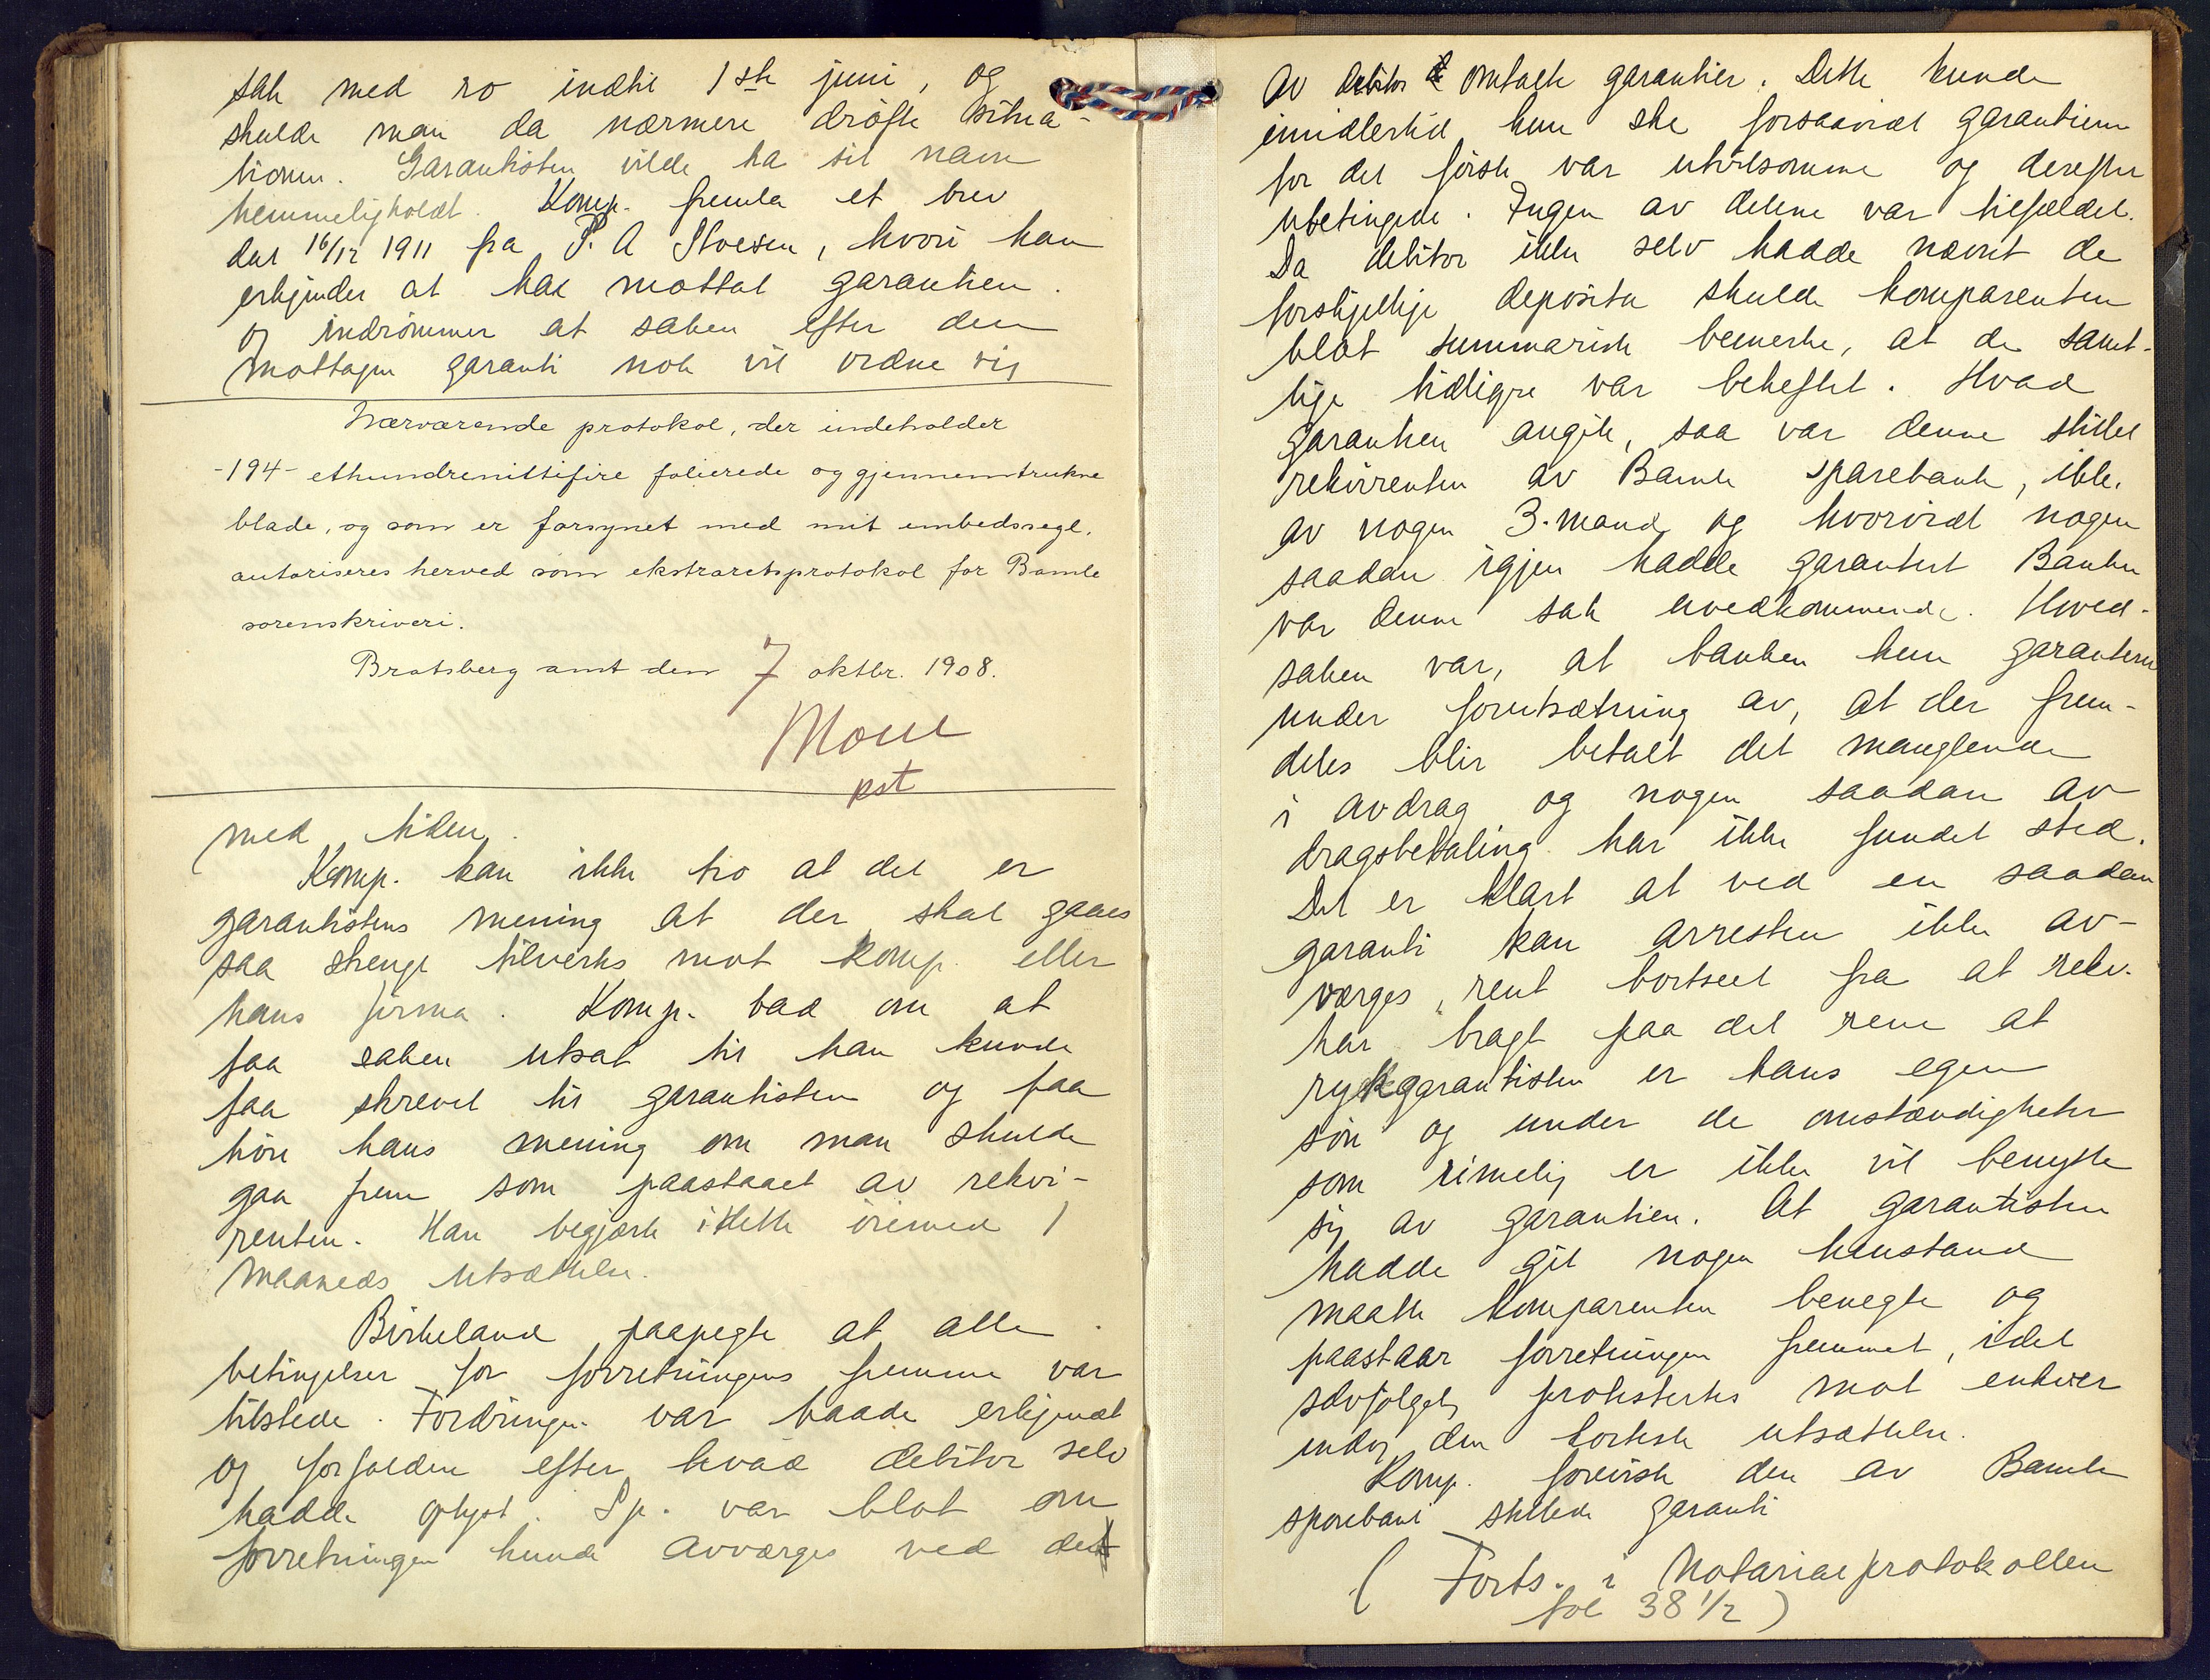 sak med ro indtil 1ste juni, og
skulde man da nærmere drøfte situa-
tionen. Garantisten vilde ha sit navn
hemmeligholdt. Komp. fremla et brev
dat 16/12 1911 fra P. A , hvori han
erkjender at ha mottat garantien.
og indrömmer at saken efter den
mottagne garanti nok vil ordne sig
Nærværende protokol, der indeholder
-194- ethundrenittifire folierede og gjennemtrukne
blade, og som er forsynet med mit embedssegl,
autoriseres herved som ekstraretsprotokol for Bamle
sorenskriveri.
Bratsberg amt den 7 oktbr. 1908.
kst
med tiden.
Komp. kan ikke tro at det er
garantistens mening at der skal gaaes
saa strengt tilverks mot komp. eller
hans firma. Komp. bad om at
faa saken utsat til han kunde
faa skrevet til garantisten og faa
höre hans mening om man skulde
gaa frem som paastaaet av rekvi-
renten. Han begjærte i dette öiemed 1
maaneds utsættelse.
Birkeland paapegte at alle
betingelser for forretningens fremme var
tilstede. Fordringen var baade erkjendt
og forfalden efter hvad debitor selv
hadde oplyst. Sp. var blot om
forretningen kunde avværges ved de
av debitor omtalte garantier. Dette kunde
imidlertid kun ske forsaavidt garantierne
for det förste var utvilsomme og derefter
ubetingede. Ingen av delene var tilfældet.
Da debitor ikke selv hadde nævnt de
forskjellige deposita skulde komparenten
blot summarisk bemerke, at de samt-
lige tidligere var beheftet. Hvad
garantien angik, saa var denne stillet
rekvirenten av Bamle sparebank, ikke
av nogen 3.mand og hvorvidt nogen
saadan igjen hadde garantert Banken
var denne sak uvedkommende. Hoved-
saken var, at banken kun garanterer
under forutsætning av, at der frem-
deles blir betalt det manglende
i avdrag og nogen saadan av
dragsbetaling har ikke fundet sted.
Det er klart at ved en saadan
garanti kan arresten ikke av-
værges, rent bortseet fra at rekv.
har bragt paa det rene at
rykgarantisten er hans egen
sön og under de omstændigheter
som rimelig er ikke vil benytte
sig av garantien. At garantisten
hadde git nogen henstand
maatte komparenten benegte og
paastaar forretningen fremmet, idet
selvfølgelig protestertes mot enhver
endog den korteste utsættelse.
Komp. foreviste den av Bamle
sparebank stillede garanti
( Forts. i Notarialprotokollen
fol 38 1/2 )